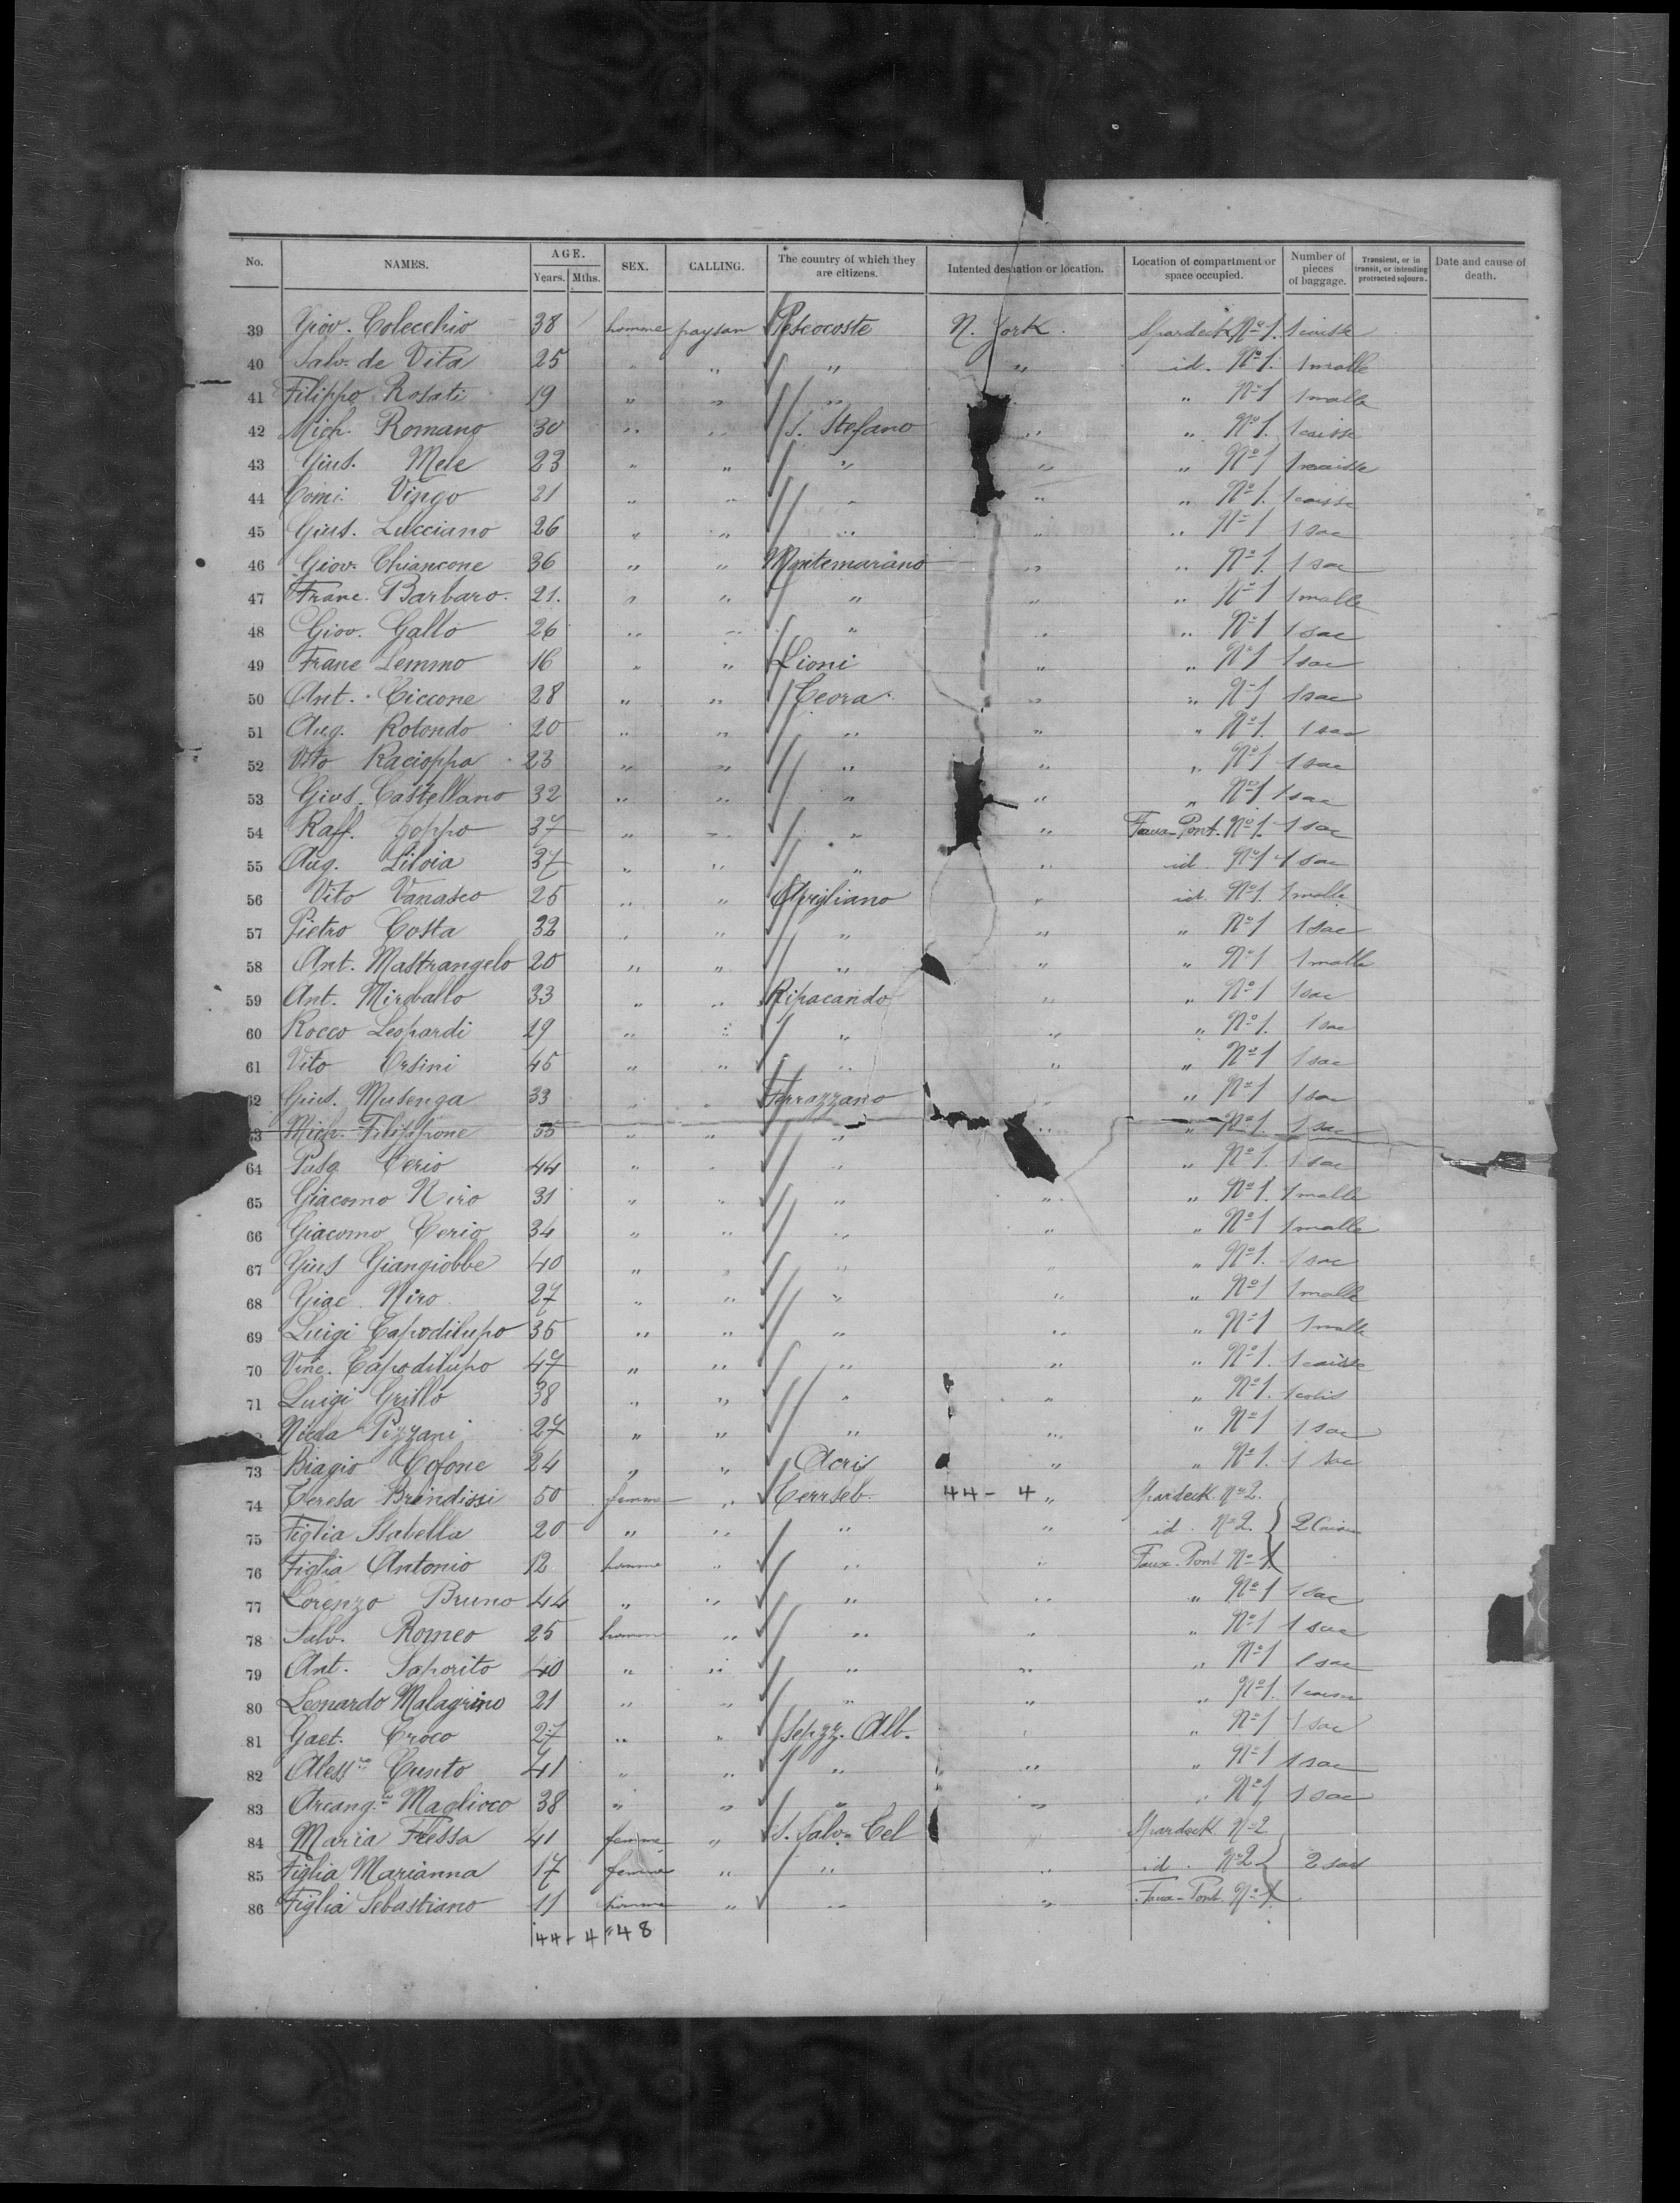 No. NAMES. AGE. Years. Mths. SEX. CALLING. The country of which they are citizens. Intented desination or location. Location of compartment or space occupied. Number of pieces of baggage. Transient, or in transit, or intending protracted sojourn. Date and cause of death.
39 Giov. Colecchio 38 homme paysan Pescocoste N. York. Spardeck No 1. 1 caisse
40 Salv. de Vita 25 " " " " id. No 1. 1 malle
41 Filippo Rosati 19 " " " " No 1 1 malle
42 Mich. Romano 30 " " S. Stefano " " No 1. 1 caisse
43 Gius. Mele 23 " " " " " No 1 1 caisse
44 Comi. Vingo 21 " " " " " No 1. 1 caisse
45 Gius. Lucciano 26 " " " " " No 1 1 sac
46 Giov. Chiancone 36 " " Montemarano " " No 1. 1 sac
47 Franc. Barbaro. 21. " " " " " No 1 1 malle
48 Giov. Gallo 26 " " " " " No 1 1 sac
49 Franc Lemmo 16 " " Lioni " " No 1 1 sac
50 Ant. Ciccone 28 " " Ceora " " No 1 1 sac
51 Aug. Rotondo 20 " " " " " No 1. 1 sac
52 Vito Racioppa 23 " " " " " No 1 1 sac
53 Gius. Castellano 32 " " " " " No 1 1 sac
54 Raff. Zoppo 37 " " " " Faux-Pont. No 1. 1 sac
55 Aug. Liloia 37 " " " " id No 1 1 sac
56 Vito Vanasco 25 " " Avigliano " id. No 1. 1 malle
57 Pietro Costa 32 " " " " " No 1 1 sac
58 Ant. Mastrangelo 20 " " " " " No 1 1 malle
59 Ant. Miroballo 33 " " Ripacando " " No 1 1 sac
60 Rocco Leopardi 19 " " " " " No 1. 1 sac
61 Vito Orsini 45 " " " " " No 1 1 sac
62 Gius. Musenga 33 " " Ferrazzano " " No 1 1 sac
63 Mich. Filippone 55 " " " " " No 1. 1 sac
64 Pasq. Cerio 44 " " " " No 1. 1 sac
65 Giacomo Niro 31 " " " " " No 1. 1 malle
66 Giacomo Cerio 34 " " " " " No 1 1 malle
67 Gius Giangiobbe 40 " " " " " No 1. 1 sac
68 Giac. Niro 27 " " " " " No 1 1 malle
69 Luigi Capodilupo 35 " " " " " No 1 1 malle
70 Vinc. Capodilupo 47 " " " " " No 1. 1 caisse
71 Luigi Grillo 38 " " " " " No 1. 1 colis
Nicola Pizzani 27 " " " " " No 1 1 sac
73 Biagio Cofone 24 " " Acri " " No 1. 1 sac
74 Teresa Brindissi 50 femme " Cerrseb. 44 - 4 " Spardeck. No 2.
75 Figlia Isabella 20 " " " " id. No 2. 2 Caisse
76 Figlia Antonio 12 homme " " " Faux-Pont No 1
77 Lorenzo Bruno 44 " " " " " No 1 1 sac
78 Salv. Romeo 25 homme " " " " No 1 1 sac
79 Ant. Saporito 40 " " " " " No 1 1 sac
80 Leonardo Malagrino 21 " " " " " No 1. 1 caisse
81 Gaet. Croco 27 " " Sepzz. Alb. " " No 1 1 sac
82 Aless. Cunto 41 " " " " " No 1 1 sac
83 Arcang. Maglioco 38 " " " " " No 1 1 sac
84 Maria Fressa 41 femme " S. Salv. Cel " Spardeck No 2
85 Figlia Marianna 17 femme " " " id. No 2 2 sacs
86 Figlia Sebastiano 11 homme " " " Faux-Pont. No 1
44 - 4 " 48